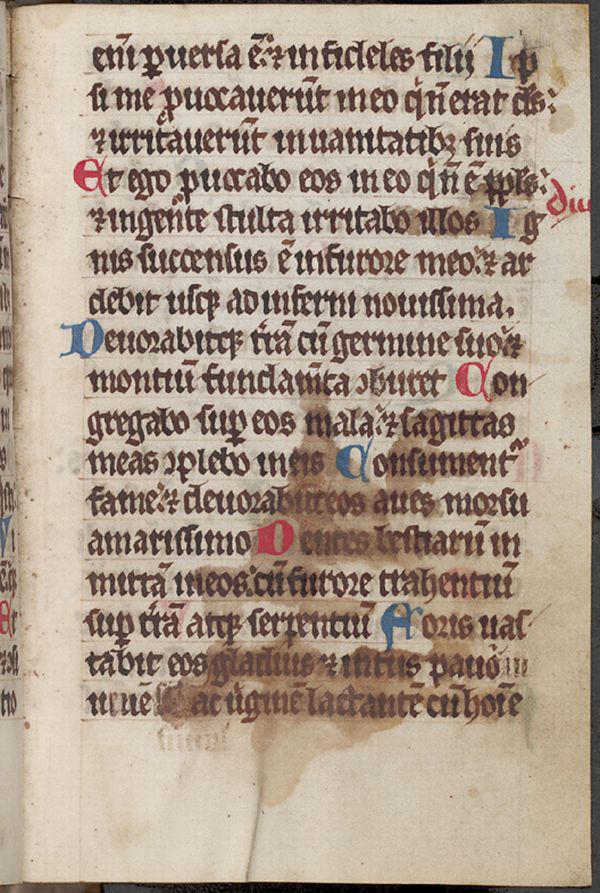 em̄ ꝑuersa ē: ⁊ infideles filij Ip
si me ꝓuocauerūt in eo q̇ nō erat d̄s:
⁊ irritauerūt in uanitatibꝫ suis
Et ego ꝓuocabo eos in eo q̇ nō ē ppl̄s:
⁊ in gente stulta irritabo illos Ig
nis succensus ē in furore meo: ⁊ ar
debit usqꝫ ad inferni nouissima.
Deuorabitqꝫ t̄rā cū germine suo: ⁊
montiū fundam̄ta ↄburet Con
gregabo suꝑ eos mala: ⁊ sagittas
meas ↄplebo in eis Consument᷑
fame: ⁊ deuorabūt eos aues morsu
amarissimo Dentes bestiarū in
mittā in eos: cū furore trahentiū
suꝑ t̄rā atqꝫ serpentiū Foris uas
tabit eos gladius ⁊ intus pauor
iuuenē ac uirginē lactantē cū hoīe